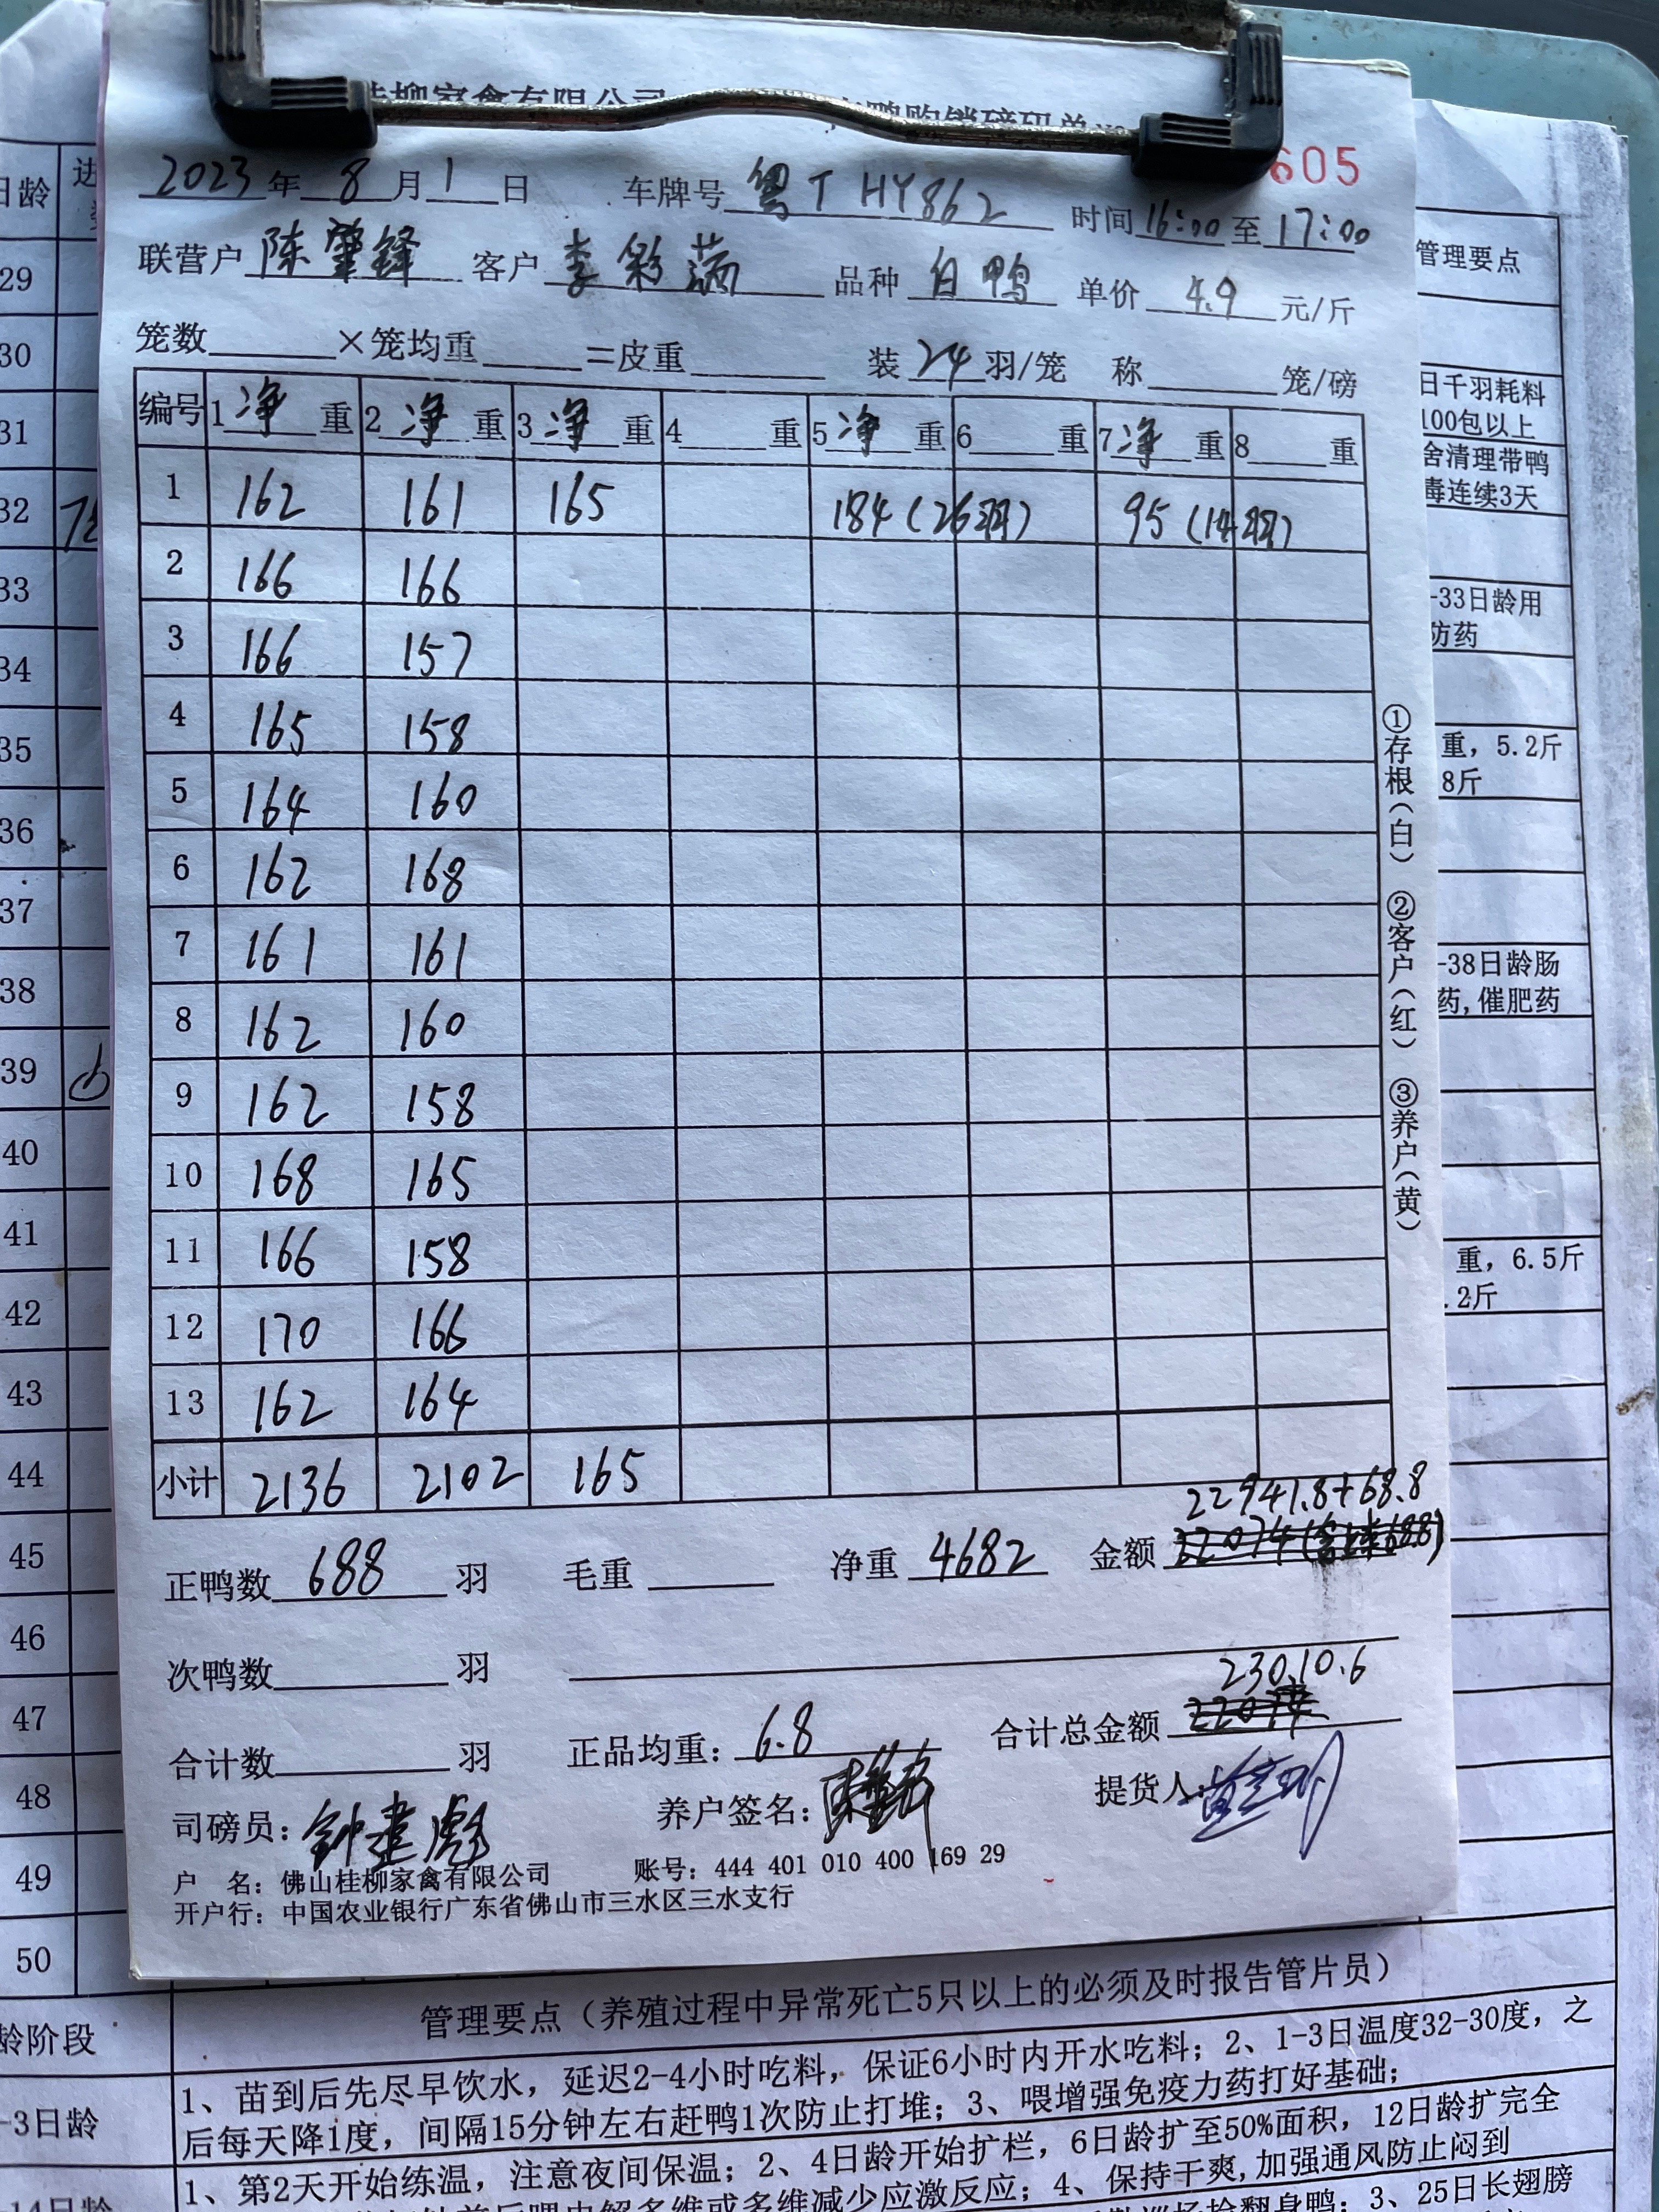 桂柳家禽有限公司 鸭购销磅码单
605
2023年8月1日 车牌号 粤T HY862 时间16:00至17:00
联营户 陈肇锋 客户 李彩 品种 白鸭 单价 4.9 元/斤
笼数 ×笼均重 =皮重 装 24 羽/笼 称 笼/磅
编号 1 净 重 2 净 重 3 净 重 4 重 5 净 重 6 重 7 净 重 8 重
1 162 161 165 184(26羽) 95(14羽)
2 166 166
3 166 157
4 165 158
5 164 160
6 162 168
7 161 161
8 162 160
9 162 158
10 168 165
11 166 158
12 170 166
13 162 164
小计 2136 2102 165
22941.8+68.8
正鸭数 688 羽 毛重 净重 4682 金额
次鸭数 羽
23010.6
合计数 羽 正品均重: 6.8 合计总金额 22074
司磅员: 钟建彪 养户签名: 提货人:
户 名: 佛山桂柳家禽有限公司 账号: 444 401 010 400 169 29
开户行: 中国农业银行广东省佛山市三水区三水支行
①存根(白) ②客户(红) ③养户(黄)
日龄 进
29
30
31
32
33
34
35
36
37
38
39
40
41
42
43
44
45
46
47
48
49
50
管理要点
日千羽耗料
100包以上
舍清理带鸭
毒连续3天
-33日龄用
防药
重, 5.2斤
8斤
-38日龄肠
药,催肥药
重, 6.5斤
.2斤
管理要点（养殖过程中异常死亡5只以上的必须及时报告管片员）
龄阶段
-3日龄
1、苗到后先尽早饮水，延迟2-4小时吃料，保证6小时内开水吃料；2、1-3日温度32-30度，之
后每天降1度，间隔15分钟左右赶鸭1次防止打堆；3、喂增强免疫力药打好基础；
-14日龄
1、第2天开始练温，注意夜间保温；2、4日龄开始扩栏，6日龄扩至50%面积，12日龄扩完全